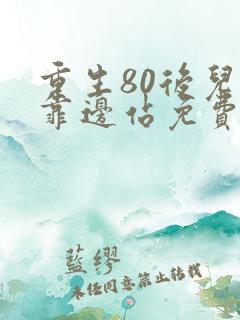 重生80後兒
靠邊佔免費
藍繆
未經同意禁止轉載